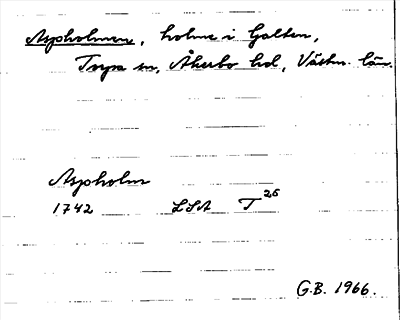 Aspholmen, holme i Galten,
Torpa sn, Åkerbo hd, Västm. län.
Aspholm
1742 LSA T 25
G.B. 1966.